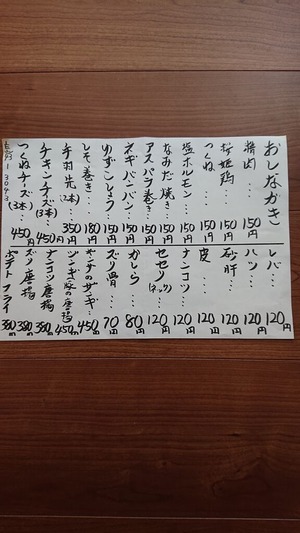 おしながき
精肉・・・ 150円
桜姫鶏 150円
つくね・・・ 150円
塩ホルモン・・ 150円
なみだ焼き・ 150円
アスパラ巻き・ 150円
ネギバンバン・ 150円
ゆずこしょう・ 150円
しそ巻き・・・ 180円
手羽先(2本)・ 350円
チキンチーズ(3本) 450円
つくねチーズ(3本) 450円
レバー・・・ 120円
ハツ・・・ 120円
砂肝・・・ 120円
皮・・・ 120円
ナンコツ・・・ 120円
セセリ(ネック) 120円
かしら・・・ 80円
ズリ骨・・・ 70円
のザンギ・・ 450円
の唐揚 450円
ナンコツ唐揚 380円
唐揚 380円
ポテトフライ 380円